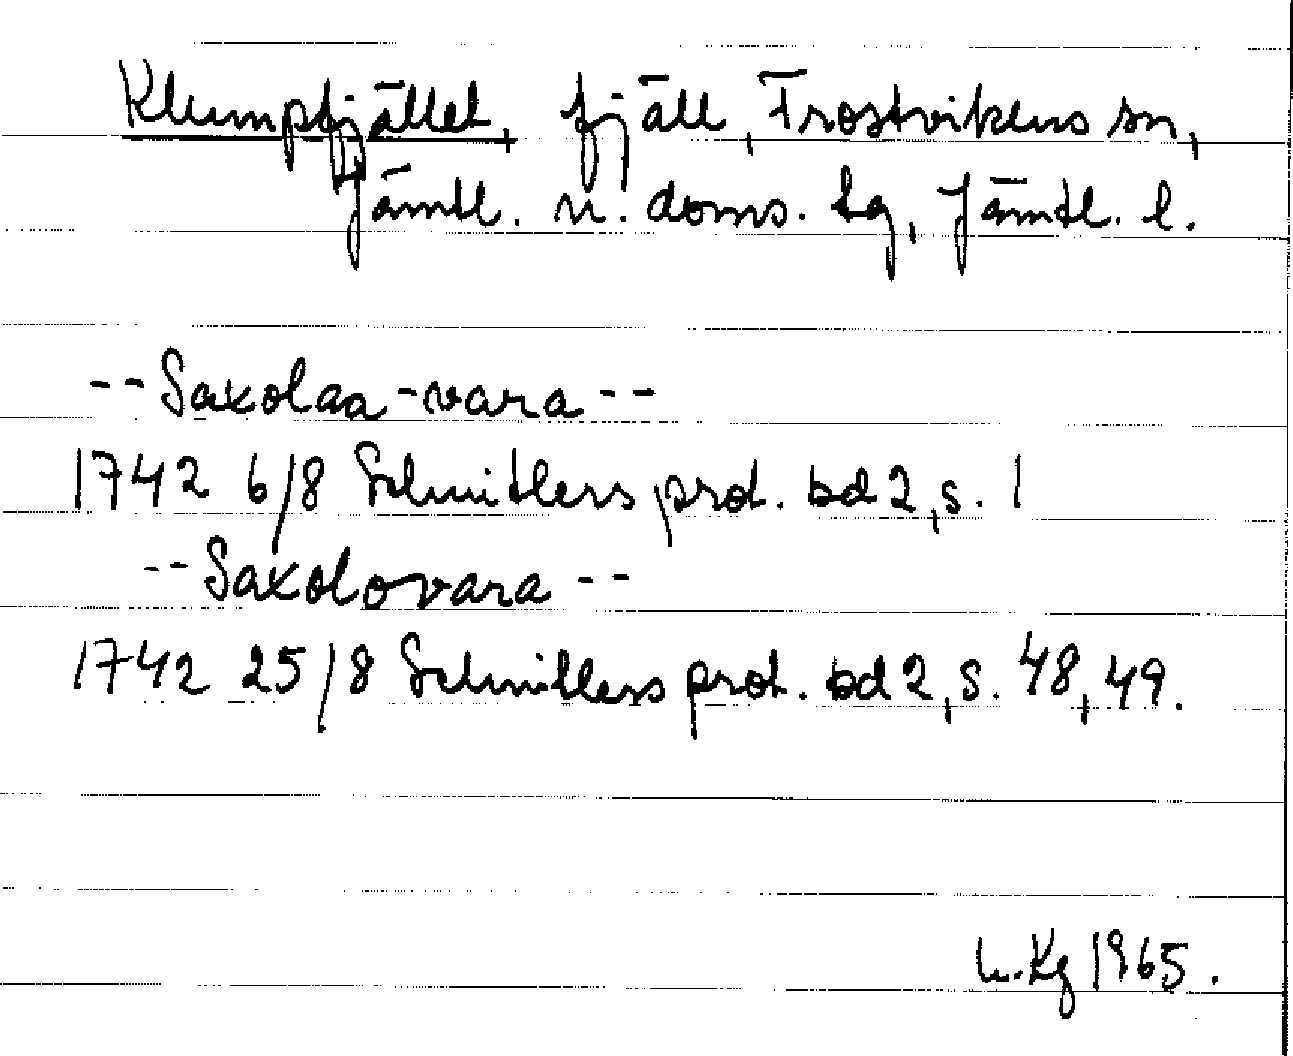 Klumpfjället, fjäll, Frostvikens sn,
Jämtl. n. doms. tg, Jämtl. l.
--Saxolaa-vara--
1742 6/8 Schnitlers prot. bd 2, s. 1
--Saxolovara--
1742 25/8 Schnitlers prot. bd 2, s. 48, 49.
Kg 1965.